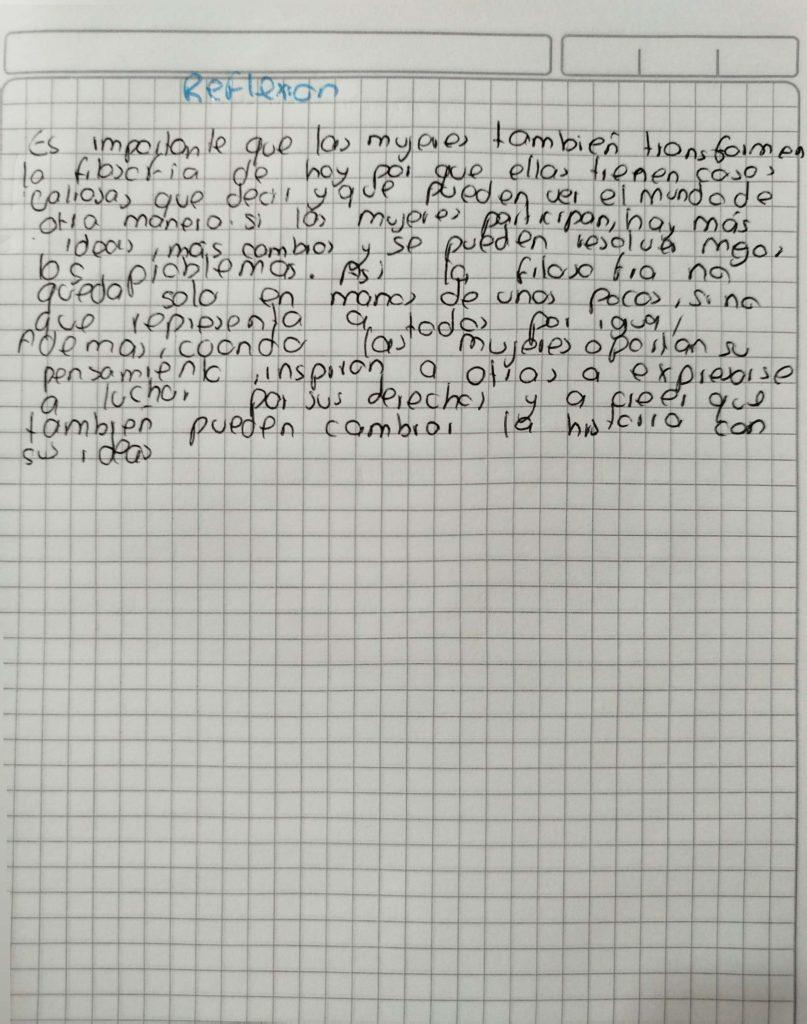 Reflexion
Es importante que las mujeres también transformen
la filosofia de hoy por que ellas tienen cosas
valiosas que decir y que pueden ver el mundo de
otra manera. si las mujeres participan, hay más
ideas, más cambios y se pueden resolver
los problemas. Asi la filosofia no
queda solo en manos de unos pocos, sino
que representa a todos por igual,
Ademas, cuando las mujeres aportan su
pensamiento, inspiran a otras a expresarse
a luchar por sus derechos y a creer que
tambien pueden cambiar la historia con
sus ideas